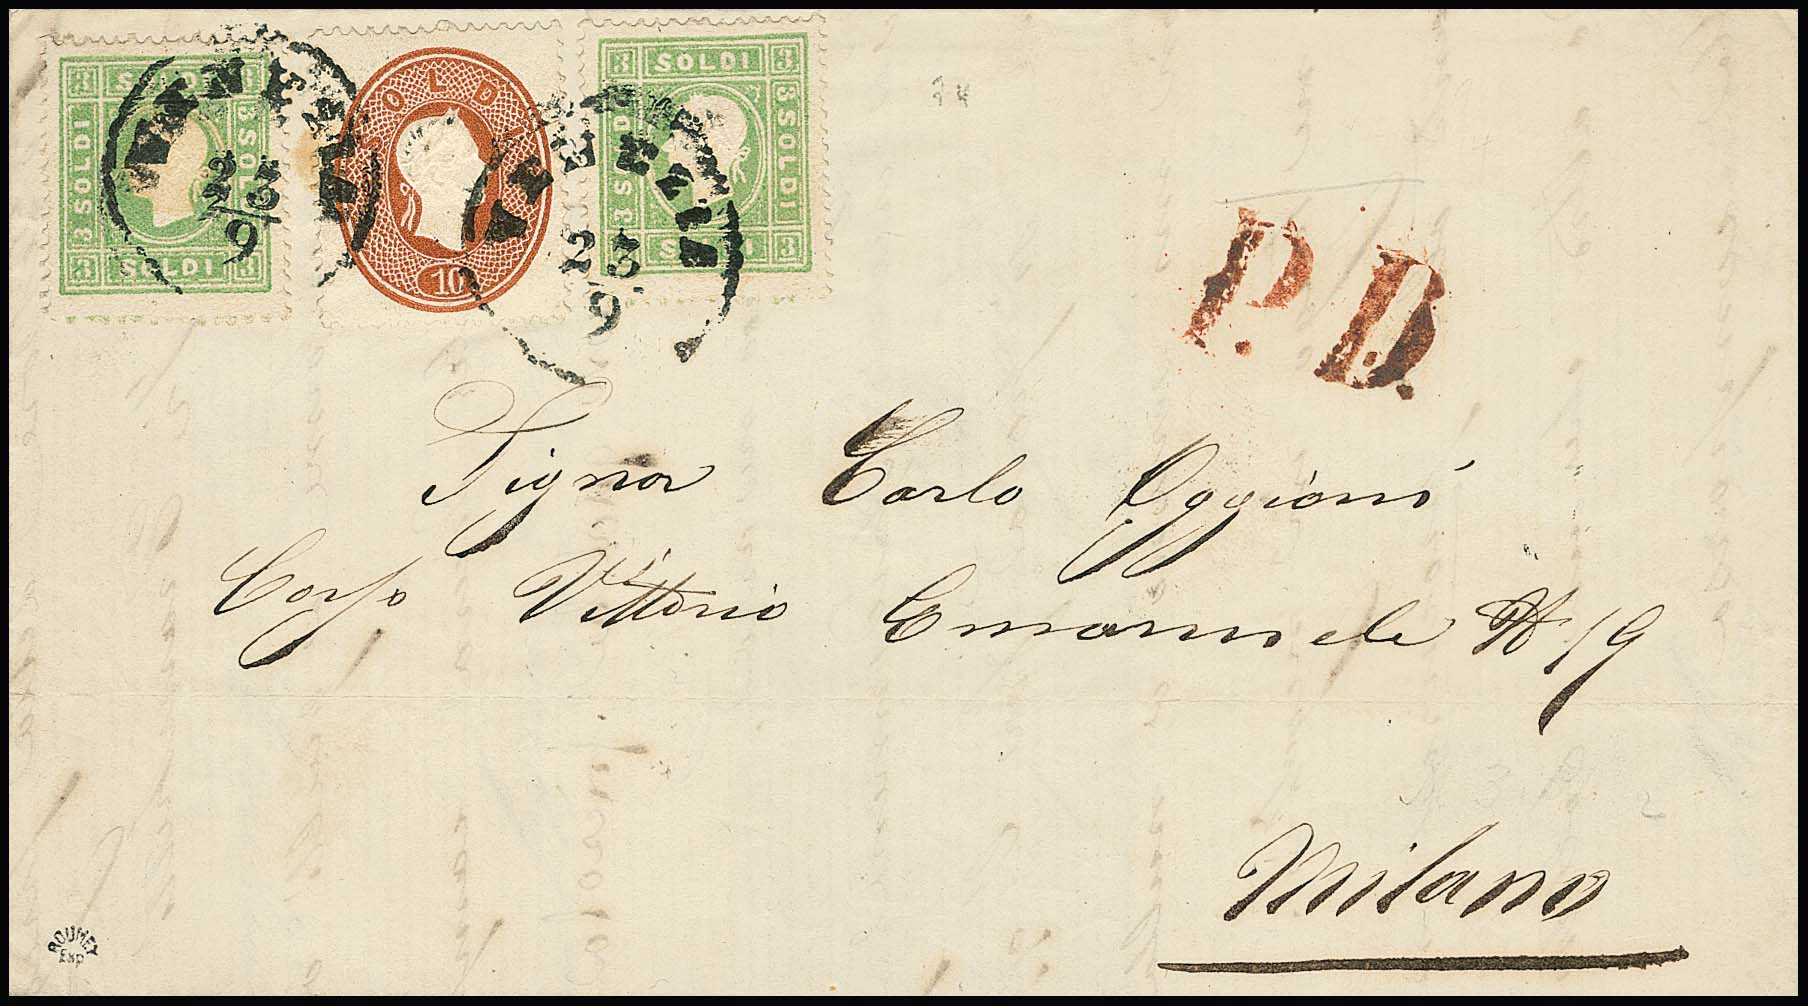 3 SOLDI 3
3 SOLDI
3 SOLDI
3 SOLDI 3
SOLDI
10
3 SOLDI 3
3 SOLDI
3 SOLDI
3 SOLDI 3
VENEZIA
23
9
VENEZIA
23
9
P.D.
Signor Carlo Oggioni
Corso Vittorio Emanuele N 19
Milano
ROUMET
Exp